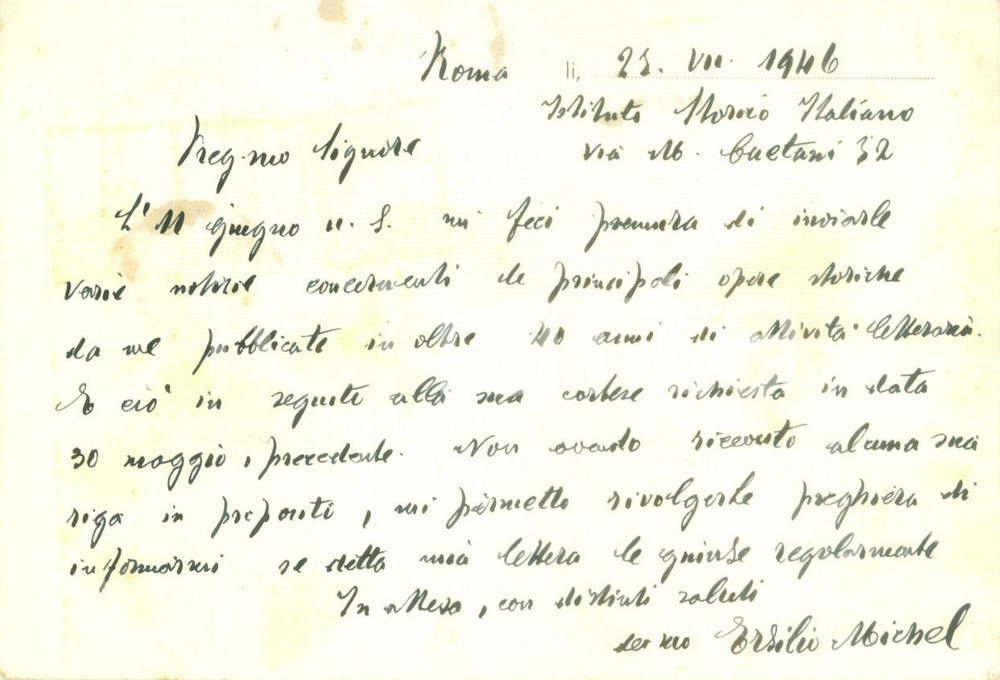 Roma li, 23. VII. 1946
Istituto Storico Italiano
Via M. Caetani 32
Preg.mo Signore
L'11 giugno u. s. mi feci premura di inviarle
varie notizie concernenti le principali opere storiche
da me pubblicate in oltre 40 anni di attività letteraria.
E ciò in seguito alla sua cortese richiesta in data
30 maggio, precedente. Non avendo ricevuto alcuna sua
riga in proposito, mi permetto rivolgerle preghiera di
informarmi se detta mia lettera le giunse regolarmente
In attesa, con distinti saluti
dev.mo Ersilio Michel